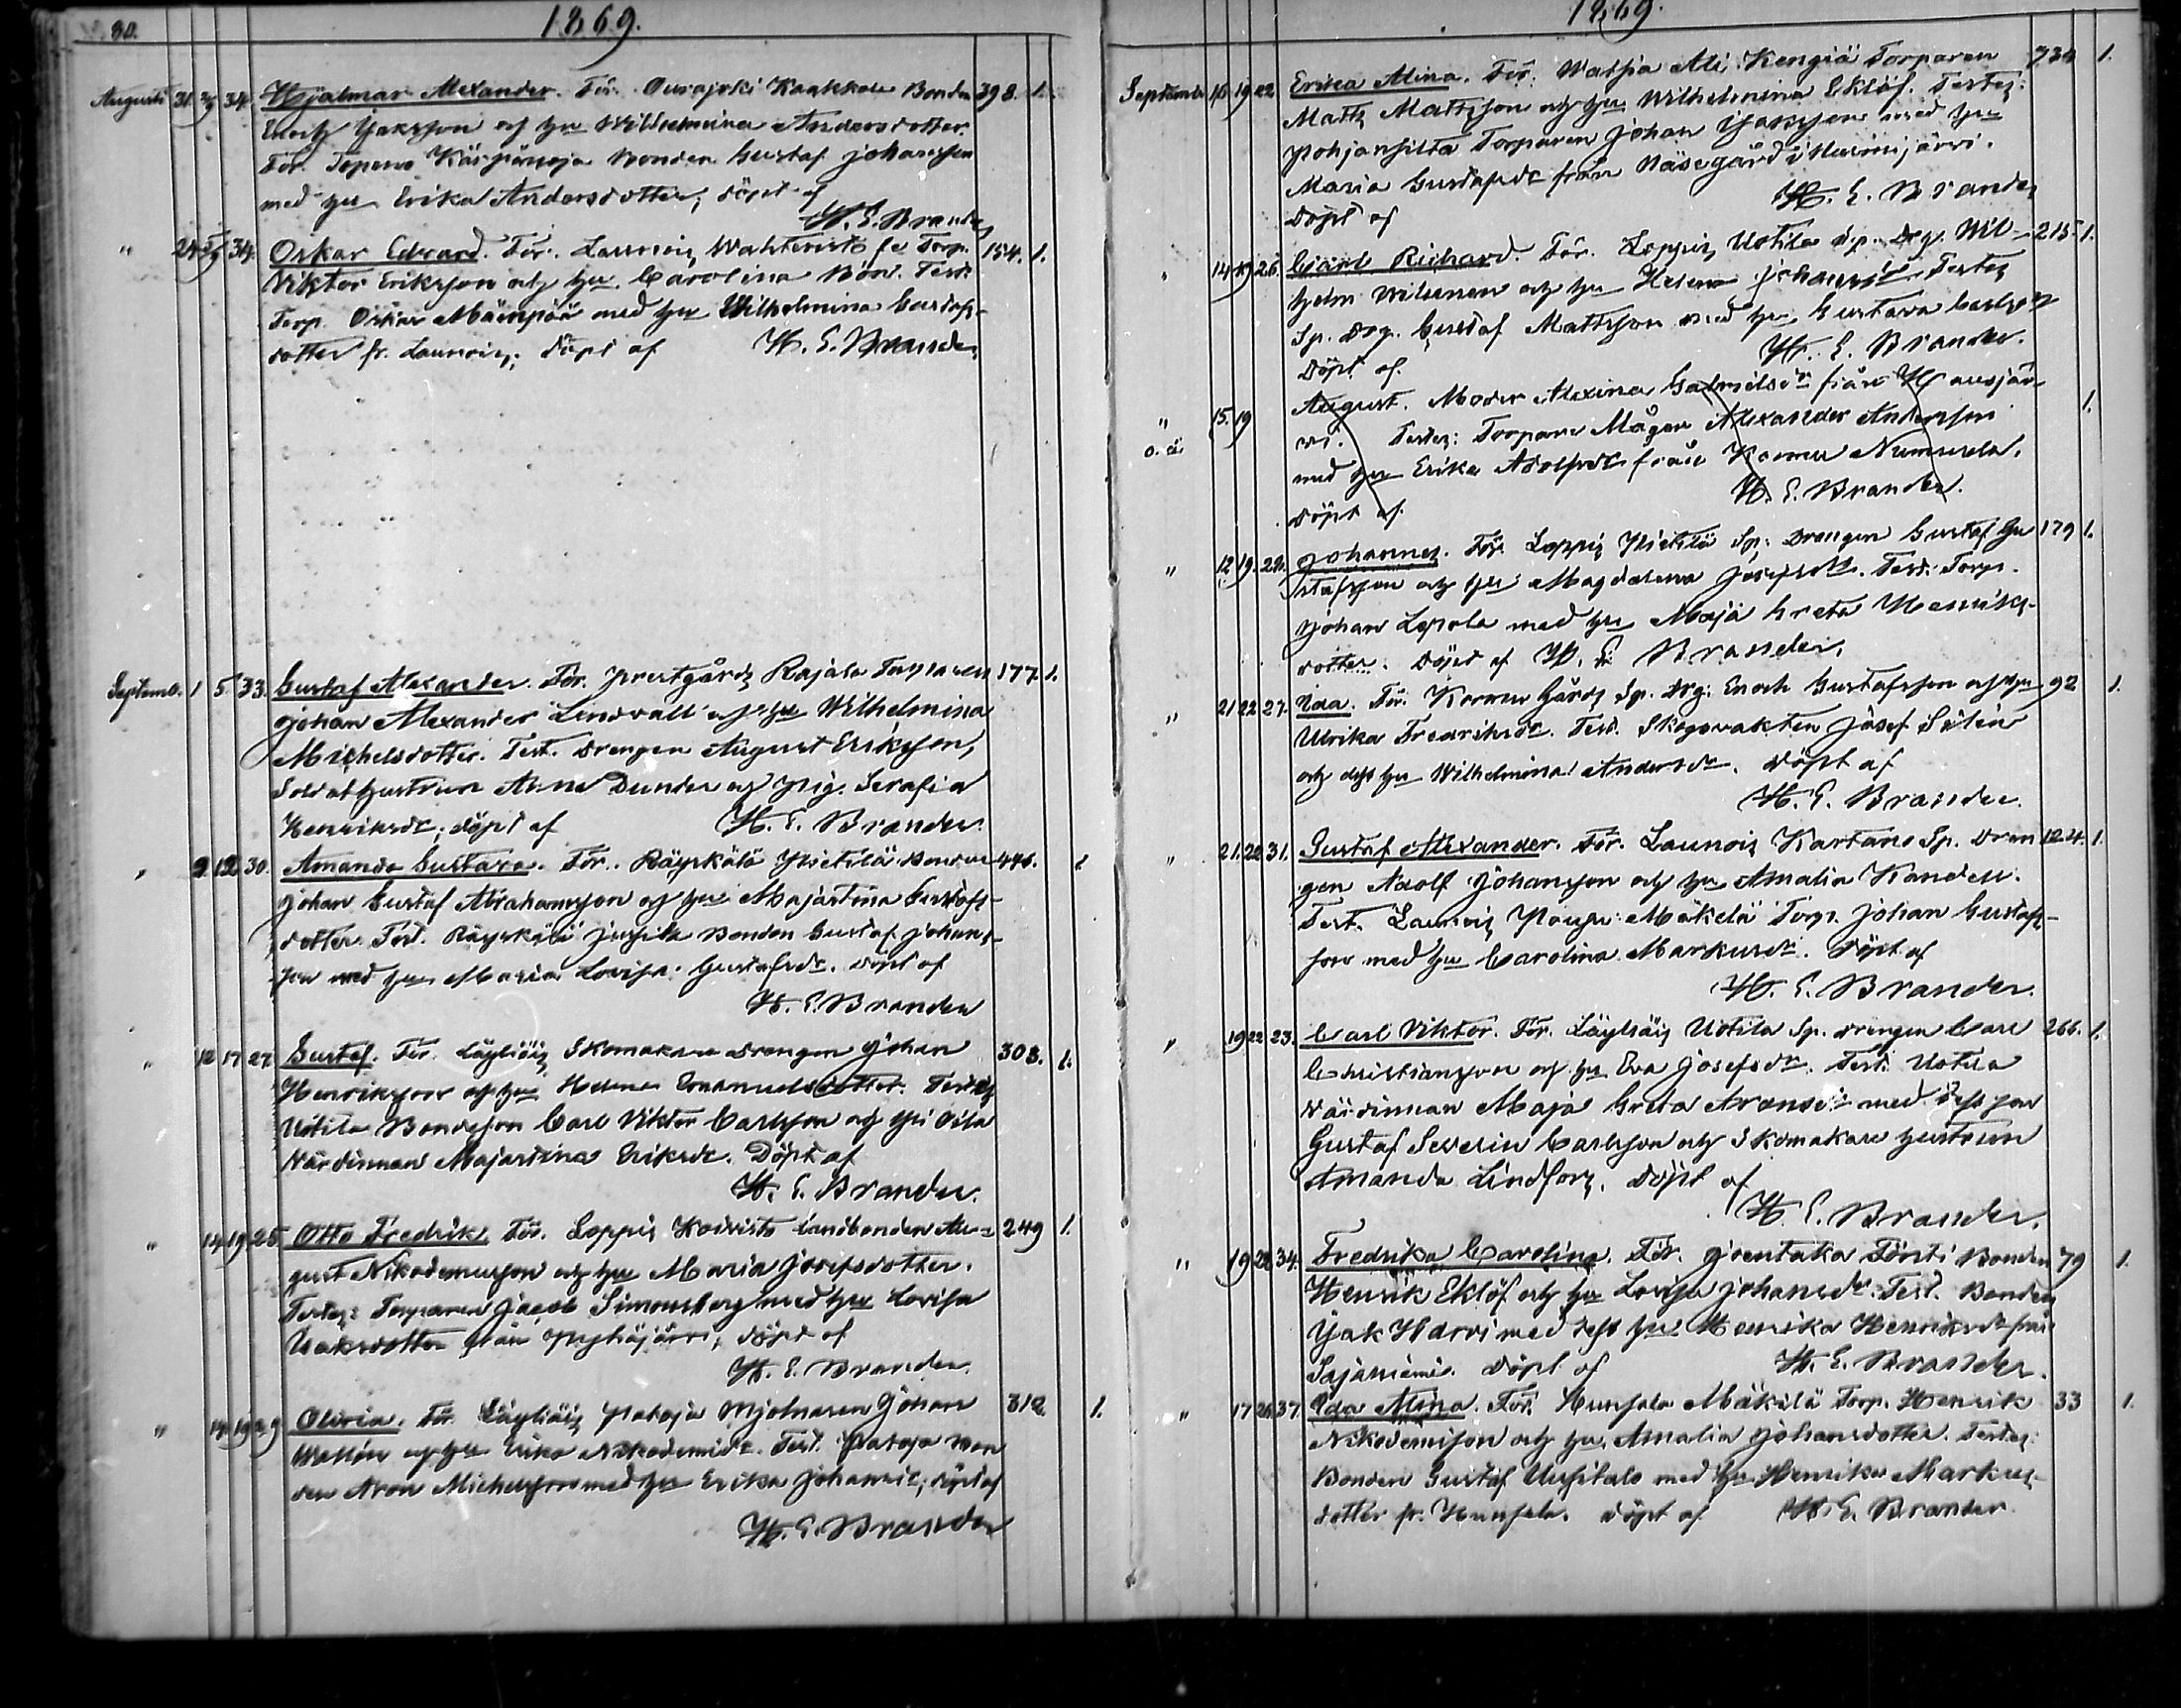 80.
1869.
Augusti 31. 2/9 34. Hjalmar Alexander. För. Ourajoki Kaakkola Bonden 398. 1.
Enoch Isaksson och hu Wilhelmina Andersdotter.
För. Topeno Bonden Gustaf Johansson
med hu Erika Andersdotter; döpt af
H. E. Brander
" 24 5/9 34. Oskar Edvard. För. Launois Wahteristo Torp. 154. 1.
Viktor Eriksson och hu Carolina Test.
Torp. Oskar Mäenpää med hu Wilhelmina Gustafs-
dotter fr. Launois; döpt af H. E. Brander
Septemb. 1 5 33. Gustaf Alexander. För. Prestgårds Rajala Torparen 177. 1.
Johan Alexander Lindvall och hu Wilhelmina
Michelsdotter. Test. Drengen August Eriksson,
Soldathustrun Anna Dunder och Pig. Serafia
Henriksdr.; döpt af H. E. Brander.
" 9 12 30. Amanda Gustava. För. Räyskälä Ylietilä Bonden 446. 1
Johan Gustaf Abrahamsson och hu Majastina Gustafs-
dotter. Test. Räyskälä Bonden Gustaf Johans-
son med hu Maria Lovisa Gustafsdr. döpt af
H. E. Brander
" 12 17 27. Gustaf. För. Läyliäis Skomakare drengen Johan 303. 1.
Henriksson och hu Helena Emanuelsdotter. Testes
Uotila Bondeson Carl Viktor Carlsson och
Värdinnan Majastina Eriksdr. Döpt af
H. E. Brander.
" 14 19 25 Otto Fredrik. För. Loppis Koivisto Landbonden Au- 249 1.
gust Nikodemusson och hu Maria Josefsdotter.
Testes: Torparen Jacob Simonsberg med hu Lovisa
Isaksdotter från Pyhäjärvi; döpt af
H. E. Brander.
" 14 19 29 Olivia. För. Läyliäis Pataja Mjölnaren Johan 312. 1.
Wallin och hu Erika Nikodemidr. Test. Pataja Bon
den Aron Michelsson med hu Erika Johansdr; döpt af
H. E. Brander
1869.
Septemb. 16 19 22 Erika Alina. För. Watsia Ali Kengiä Torparen 734 1.
Matts Mattsson och hu Wilhelmina Eklöf. Testes:
Pohjansilta Torparen Johan Isaksson med hu
Maria Gustafsdr från Näsegård i Nurmijärvi.
Döpt af H. E. Brander
" 14 19 26. Carl Richard. För. Loppis Uotila Sp. Drg. Wil- 215. 1.
helm Wilenen och hu Helena Johansdr. Testes
Sp. Drg. Gustaf Mattsson med hu Gustava Carlsdr
Döpt af. H. E. Brander.
" 15. 19 August. Moder Alexina Gabrielsdr från Hausjär- 1.
o. ä. vi. Testes: Torpare Mågen Alexander Andersson
med hu Erika Adolfsdr från Kormu Nummela.
döpt af H. E. Brander.
" 12 19. 29. Johannes. För. Loppis Ylietilä Sp. Drengen Gustaf Gu 179 1.
stafsson och hu Magdalena Josefsdr. Test. Torp.
Johan Lepola med hu Maja Greta Henriks-
dotter. Döpt af H. E. Brander.
" 21 22 27. Ida. För. Kormu Gårds Sp. Drg: Enoch Gustafsson och hu 92 1.
Ulrika Fredriksdr. Test. Skogsvakten Josef Selin
och dess hu Wilhelmina Andersdr. döpt af
H. E. Brander.
" 21. 22 31. Gustaf Alexander. För. Launois Kartano Sp. Dren 124. 1.
gen Adolf Johansson och hu Amalia Kandell.
Test. Launois Mäkelä Torp. Johan Gustafs-
son med hu Carolina Markusdr. Döpt af
H. E. Brander.
" 19 22 23. Carl Viktor. För. Läyliäis Uotila Sp. drengen Carl 266. 1.
Christiansson och hu Eva Josefsdr. Test. Uotila
Värdinnan Maja Greta Aronsdr med dess son
Gustaf Severin Carlsson och Skomakare hustrun
Amanda Lindfors. Döpt af
H. E. Brander.
" 19 26 34. Fredrika Carolina. För. Joentaka Försti Bonden 79 1.
Henrik Eklöf och hu Lovisa Johansdr. Test. Bonden
Isak Harvi med dess hu Henrika Henriksdr från
Sajaniemi. Döpt af H. E. Brander.
" 17 26 37 Ida Alina. För. Hunsala Mäkilä Torp. Henrik 33 1.
Nikodemisson och hu, Amalia Johansdotter. Testes:
Bonden Gustaf Uusitalo med hu Henrika Markus-
dotter fr. Hunsala. döpt af H. E. Brander.